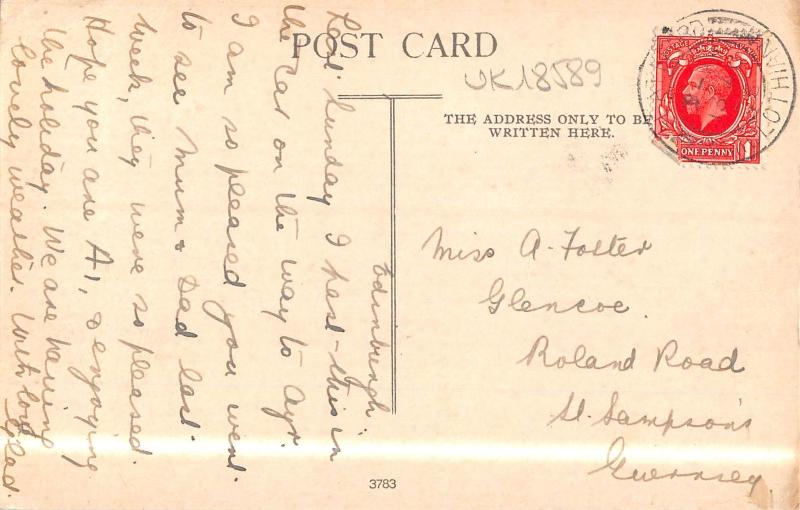 POST CARD
UK18589
THE ADDRESS ONLY TO BE
WRITTEN HERE.
ONE PENNY 1
LOTHIAN
Edinburgh.
Last Sunday I post this in
the Car on the way to Ayr.
I am so pleased you went
to see Mum & Dad last
week, they were so pleased.
Hope you are A1, & enjoying
the holiday. We are having
lovely weather. With love
Glad.
Miss A. Foster
Glencoe.
Roland Road
St. Sampson's
Guernsey
3783